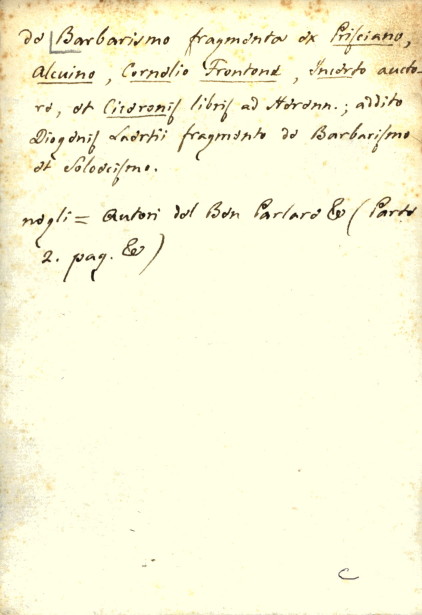 de Barbarismo fragmenta ex Prisciano,
Alcuino, Cornelio Frontone, Incerto aucto-
re, et Ciceronis libris ad Herenn.; addito
Diogenis Laertii fragmento de Barbarismo
et Soloecismo.
negli = Autori del Ben Parlare & (Parte
2. pag. &)
C